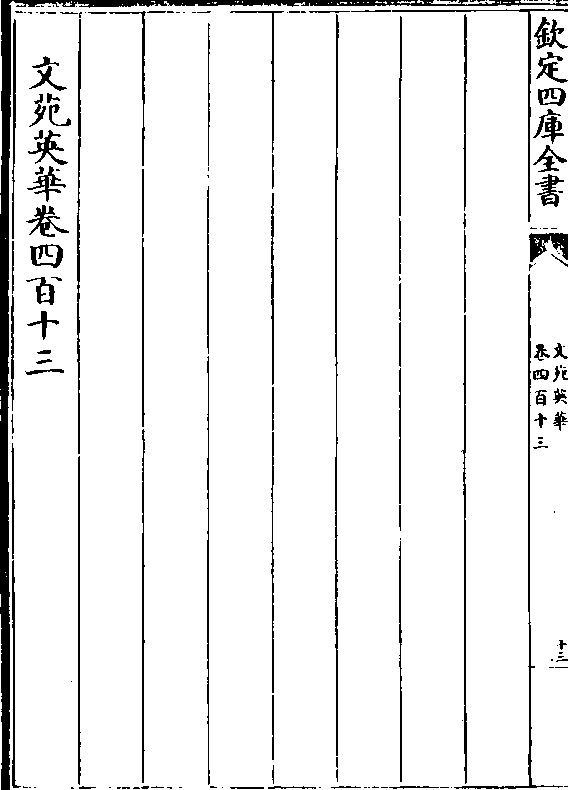 欽定四庫全書
文苑英華
卷四百十三
十三
文苑英華卷四百十三